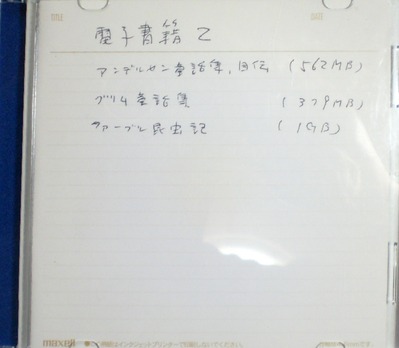 TITLE
DATE
電子書籍 2
アンデルセン童話集、自伝 (562MB)
グリム童話集 (379MB)
ファーブル昆虫記 (1GB)
maxell